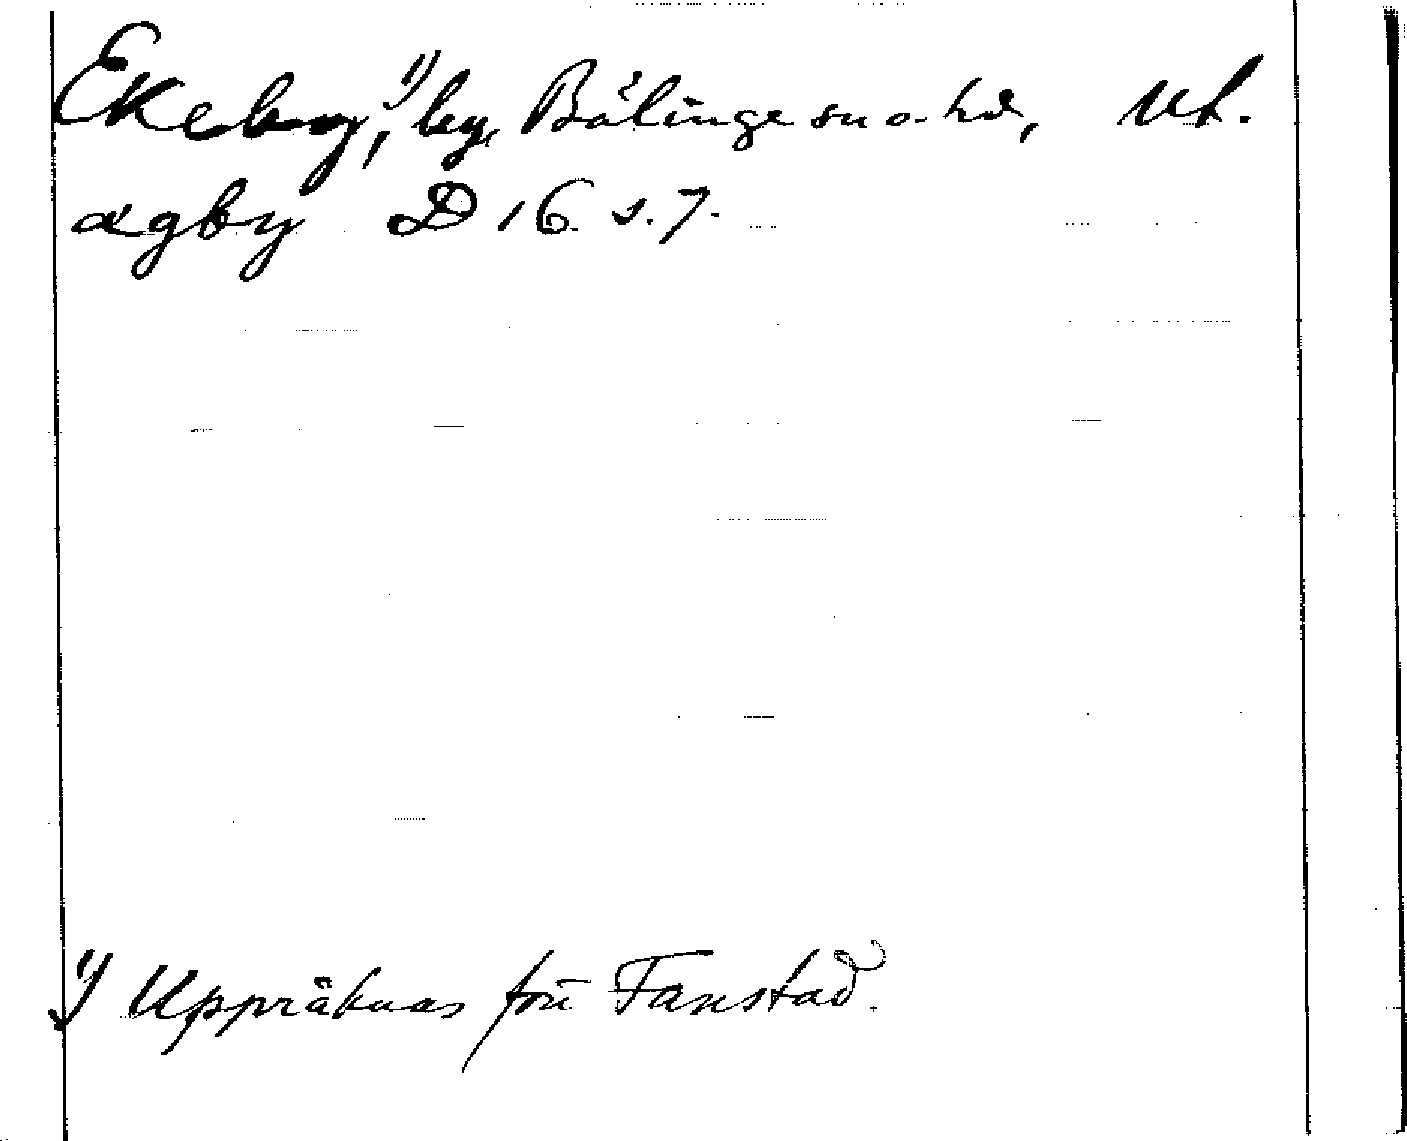 Ekeby,¹⁾ by, Bälinge sn o. hd, Upl.
ægby D 16 s. 7.
¹⁾ Uppräknas före Fanstad.